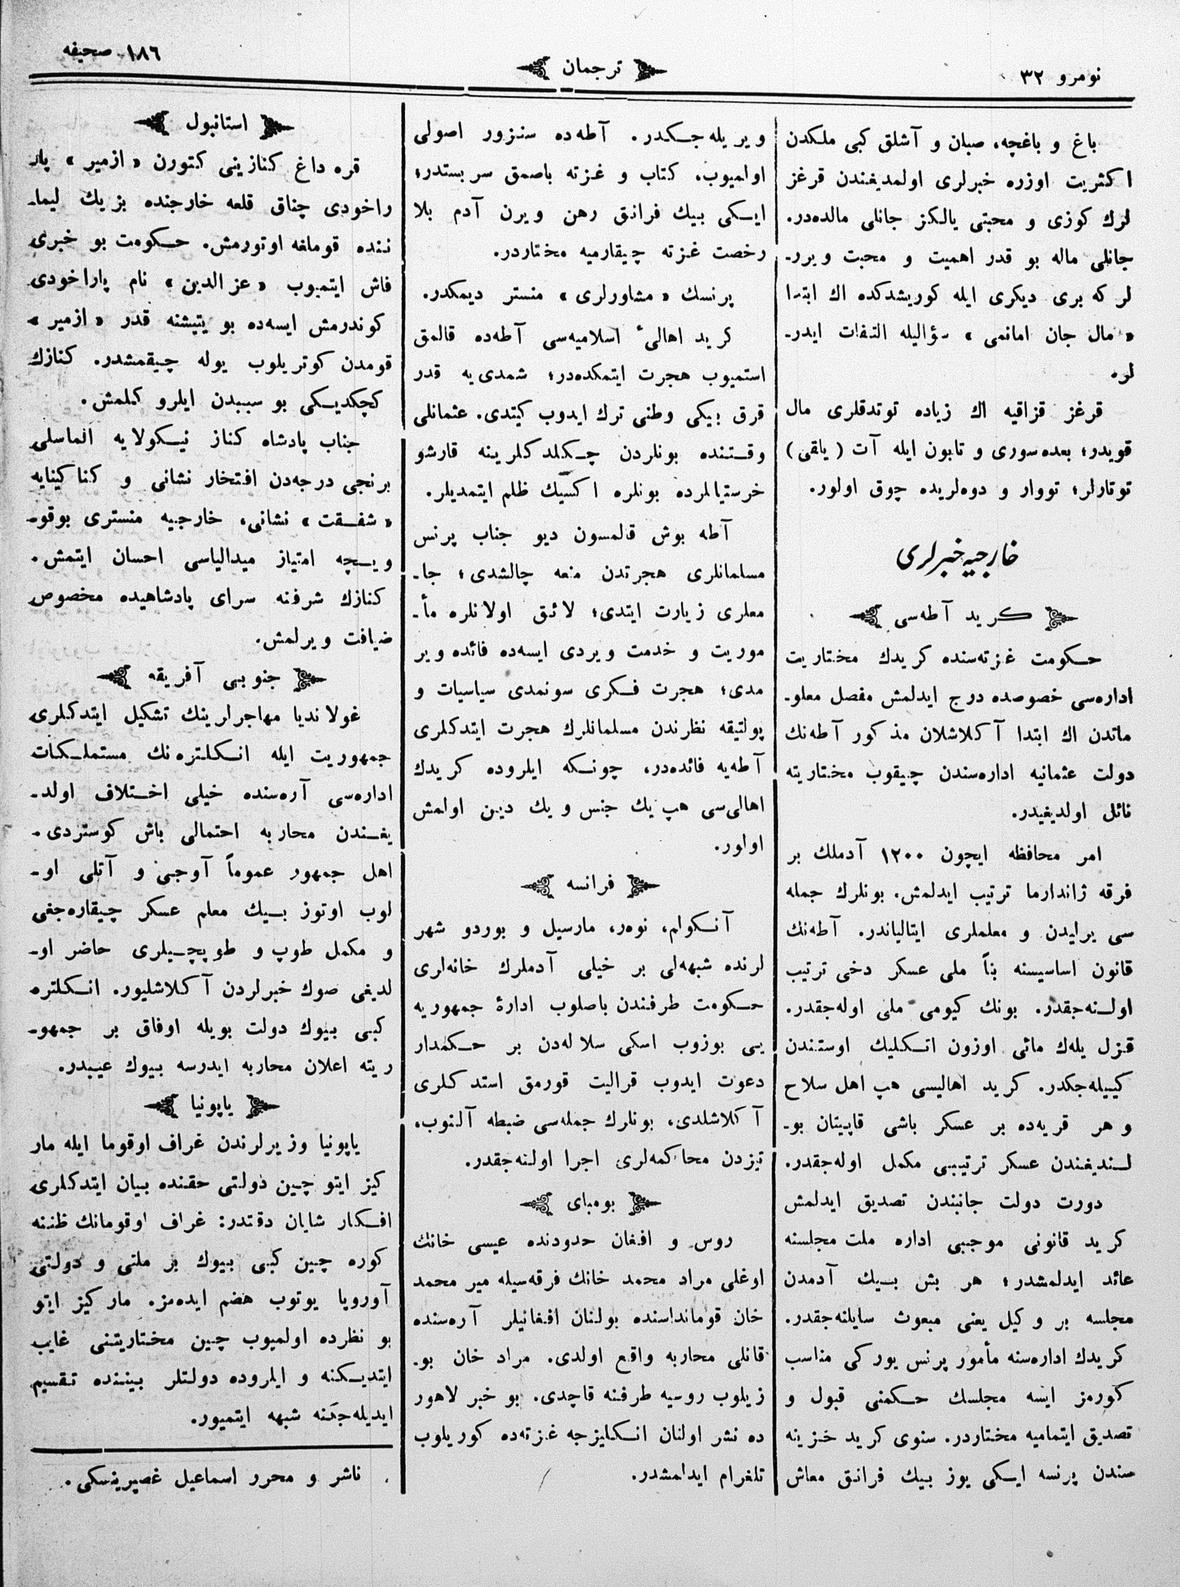 نومرو ٣٢
ترجمان
١٨٦ صحیفه
باغ و باغچه، صبان و آشلق کبی ملکدن
اکثریت اوزره خبرلری اولمدیغندن قرغز
لرك کوزی و محبتی یالکز جانلی مالده‌در.
جانلی ماله بو قدر اهمیت و محبت ویرر-
لر که بری دیکری ایله کوریشدکده اك ابتدا
« مال جان امانمی » سؤالیله التفات ایدر-
لر.
قرغز قزاقیه اك زیاده توتدقلری مال
قویدر؛ بعده سوری و تابون ایله آت (یلقی)
توتارلر؛ تووار و دوه‌لریده چوق اولور.
خارجیه خبرلری
کرید آطه‌سی
حکومت غزته‌سنده کریدك مختاریت
اداره‌سی خصوصده درج ایدلمش مفصل معلو-
ماتدن اك ابتدا آکلاشلان مذکور آطه‌نك
دولت عثمانیه اداره‌سندن چیقوب مختاریته
نائل اولدیغیدر.
امر محافظه ایچون ١٢٠٠ آدملك بر
فرقه ژاندارما ترتیب ایدلمش. بونلرك جمله
سی یرلیدن و معلملری ایتالیاندر. آطه‌نك
قانون اساسیسنه بناً ملی عسکر دخی ترتیب
اولنه‌جقدر. بونك کیومی ملی اوله‌جقدر.
قزل یله‌ك مائی اوزون اتکلیك اوستندن
کییله‌جکدر. کرید اهالیسی هپ اهل سلاح
و هر قریه‌ده بر عسکر باشی قاپیتان بو-
لندیغندن عسکر ترتیبی مکمل اوله‌جقدر.
دورت دولت جانبندن تصدیق ایدلمش
کرید قانونی موجبی اداره ملت مجلسنه
عائد ایدلمشدر؛ هر بش بیك آدمدن
مجلسه بر وکیل یعنی مبعوث سایلنه‌جقدر.
کریدك اداره‌سنه مأمور پرنس یورکی مناسب
کورمز ایسه مجلسك حکمنی قبول و
تصدیق ایتمامیه مختاردر. سنوی کرید خزینه
سندن پرنسه ایکی یوز بیك فرانق معاش
ویریله‌جکدر. آطه‌ده سنزور اصولی
اولمیوب، کتاب و غزته باصمق سربستدر؛
ایکی بیك فرانق رهن ویرن آدم بلا
رخصت غزته چیقارمیه مختاردر.
پرنسك « مشاورلری » منستر دیمکدر.
کرید اهالیٔ اسلامیه‌سی آطه‌ده قالمق
استمیوب هجرت ایتمکده‌در؛ شمدی‌یه قدر
قرق بیکی وطنی ترك ایدوب کیتدی. عثمانلی
وقتنده بونلردن چکلدکلرینه قارشو
خرستیانلرده بونلره اکسیك ظلم ایتمدیلر.
آطه بوش قالمسون دیو جناب پرنس
مسلمانلری هجرتدن منعه چالشدی؛ جا-
معلری زیارت ایتدی؛ لائق اولانلره مأ-
موریت و خدمت ویردی ایسه‌ده فائده ویر
مدی؛ هجرت فکری سونمدی سیاسیات و
پولتیقه نظرندن مسلمانلرك هجرت ایتدکلری
آطه‌یه فائده‌در، چونکه ایلروده کریدك
اهالی‌سی هپ یك جنس و یك دین اولمش
اولور.
فرانسه
آنکوام، نوه‌ر، مارسیل و بوردو شهر
لرنده شبهه‌لی بر خیلی آدملرك خانه‌لری
حکومت طرفندن باصلوب ادارهٔ جمهوریه
یی بوزوب اسکی سلاله‌دن بر حکمدار
دعوت ایدوب قرالیت قورمق استدکلری
آکلاشلدی، بونلرك جمله‌سی ضبطه آلنوب،
تیزدن محاکمه‌لری اجرا اولنه‌جقدر.
بومبای
روس و افغان حدودنده عیسی خانك
اوغلی مراد محمد خانك فرقه‌سیله میر محمد
خان قوماندا‌سنده بولنان افغانیلر آره‌سنده
قانلی محاربه واقع اولدی. مراد خان بو-
زیلوب روسیه طرفنه قاچدی. بو خبر لاهور
ده نشر اولنان انکلیزجه غزته‌ده کوریلوب
تلغرام ایدلمشدر.
استانبول
قره داغ کنازینی کتورن « ازمیر » پار
راخودی چناق قلعه خارجنده بزیك لیما-
ننده قوماغه اوتورمش. حکومت بو خبری
فاش ایتمیوب « عزالدین » نام پاراخودی
کوندرمش ایسه‌ده بو یتیشنه قدر « ازمیر »
قومدن کوتریلوب یوله چیقمشدر. کنازك
کچکدیکی بو سببدن ایلرو کلمش.
جناب پادشاه کناز نیکولایه الماسلی
برنجی درجه‌دن افتخار نشانی و کناکینایه
« شفقت » نشانی، خارجیه منستری بوقو-
ویچه امتیاز میدالیاسی احسان ایتمش.
کنازك شرفنه سرای پادشاهیده مخصوص
ضیافت ویرلمش.
جنوبی آفریقه
غولاندیا مهاجرلرینك تشکیل ایتدکلری
جمهوریت ایله انکلتره‌نك مستملکات
اداره‌سی آره‌سنده خیلی اختلاف اولد-
یغندن محاربه احتمالی باش کوستردی.
اهل جمهور عموماً آوجی و آتلی او-
لوب اوتوز بیك معلم عسکر چیقاره‌جغی
و مکمل طوپ و طوپچیلری حاضر او-
لدیغی صوك خبرلردن آکلاشلیور. انکلتره
کبی بیوك دولت بویله اوفاق بر جمهو-
ریته اعلان محاربه ایدرسه بیوك عیبدر.
یاپونیا
یاپونیا وزیرلرندن غراف اوقوما ایله مار
کیز ایتو چین دولتی حقنده بیان ایتدکلری
افکار شایان دقتدر: غراف اوقومانك ظننه
کوره چین کبی بیوك بر ملتی و دولتی
آوروپا یوتوب هضم ایده‌مز. مارکیز ایتو
بو نظرده اولمیوب چین مختاریتنی غایب
ایتدیکنه و ایلروده دولتلر بیننده تقسیم
ایدیله‌جکنه شبهه ایتمیور.
ناشر و محرر اسماعیل غصپرینسکی.